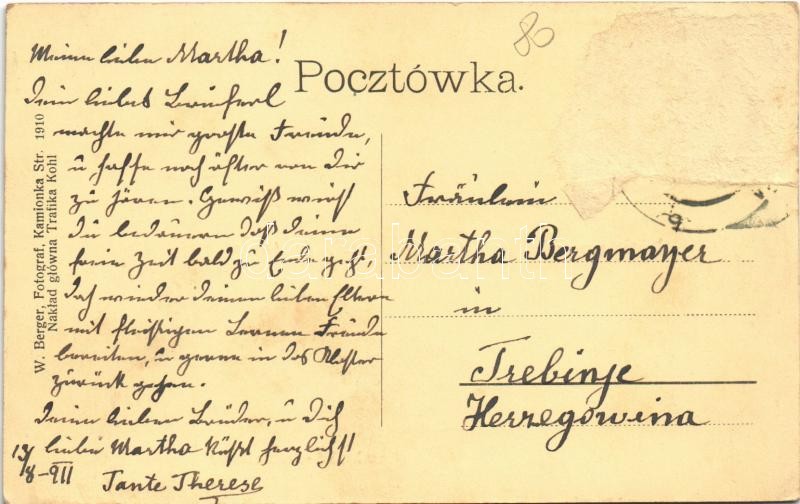 80
Pocztówka.
Meine liebe Martha!
Dein liebes Brieferl
machte mir grosse Freude,
u hoffe noch öfter von Dir
zu hören. Gewiß wirst
du bedauern daß deine
freie Zeit bald zu Ende geht,
doch wieder deinen lieben Eltern
mit fleißigen Lernen Freude
bereiten, u gerne in das Kloster
zurück gehen.
Deine lieben Brüder, u Dich
liebe Martha küßt herzlichst
Tante Therese
13/8-911
Fräulein
Martha Bergmayer
in
Trebinje
Herzegowina
W. Berger, Fotograf, Kamionka Str. 1910
Nakład główna Trafika Kohl